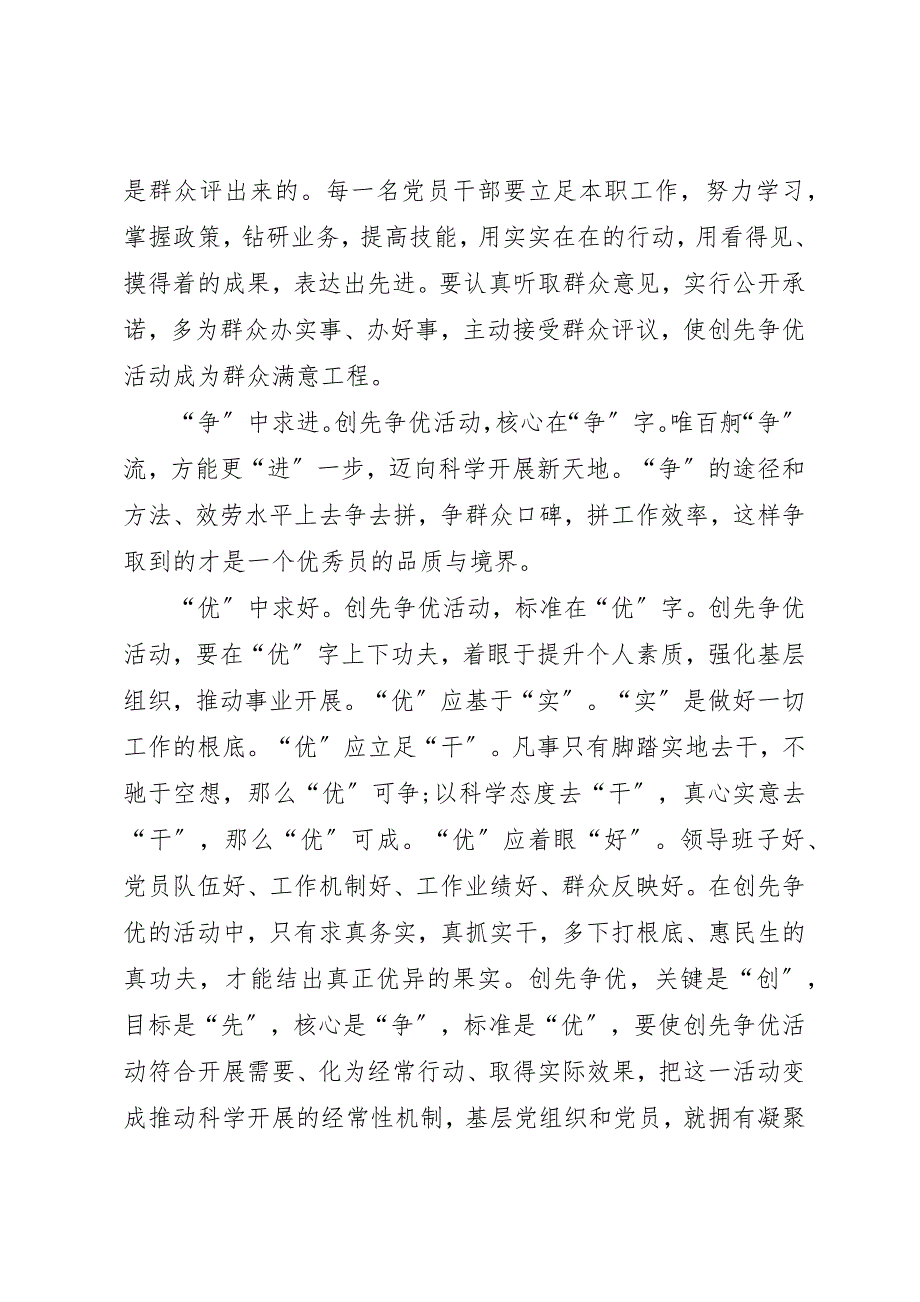 是群众评出来的。每一名党员干部要立足本职工作，努力学习，
掌握政策，钻研业务，提高技能，用实实在在的行动，用看得见、
摸得着的成果，表达出先进。要认真听取群众意见，实行公开承
诺，多为群众办实事、办好事，主动接受群众评议，使创先争优
活动成为群众满意工程。
“争〞中求进。创先争优活动，核心在“争〞字。唯百舸“争〞
流，方能更“进〞一步，迈向科学开展新天地。“争〞的途径和
方法、效劳水平上去争去拼，争群众口碑，拼工作效率，这样争
取到的才是一个优秀员的品质与境界。
“优〞中求好。创先争优活动，标准在“优〞字。创先争优
活动，要在“优〞字上下功夫，着眼于提升个人素质，强化基层
组织，推动事业开展。“优〞应基于“实〞。“实〞是做好一切
工作的根底。“优〞应立足“干〞。凡事只有脚踏实地去干，不
驰于空想，那么“优〞可争;以科学态度去“干〞，真心实意去
“干〞，那么“优〞可成。“优〞应着眼“好〞。领导班子好、
党员队伍好、工作机制好、工作业绩好、群众反映好。在创先争
优的活动中，只有求真务实，真抓实干，多下打根底、惠民生的
真功夫，才能结出真正优异的果实。创先争优，关键是“创〞，
目标是“先〞，核心是“争〞，标准是“优〞，要使创先争优活
动符合开展需要、化为经常行动、取得实际效果，把这一活动变
成推动科学开展的经常性机制，基层党组织和党员，就拥有凝聚